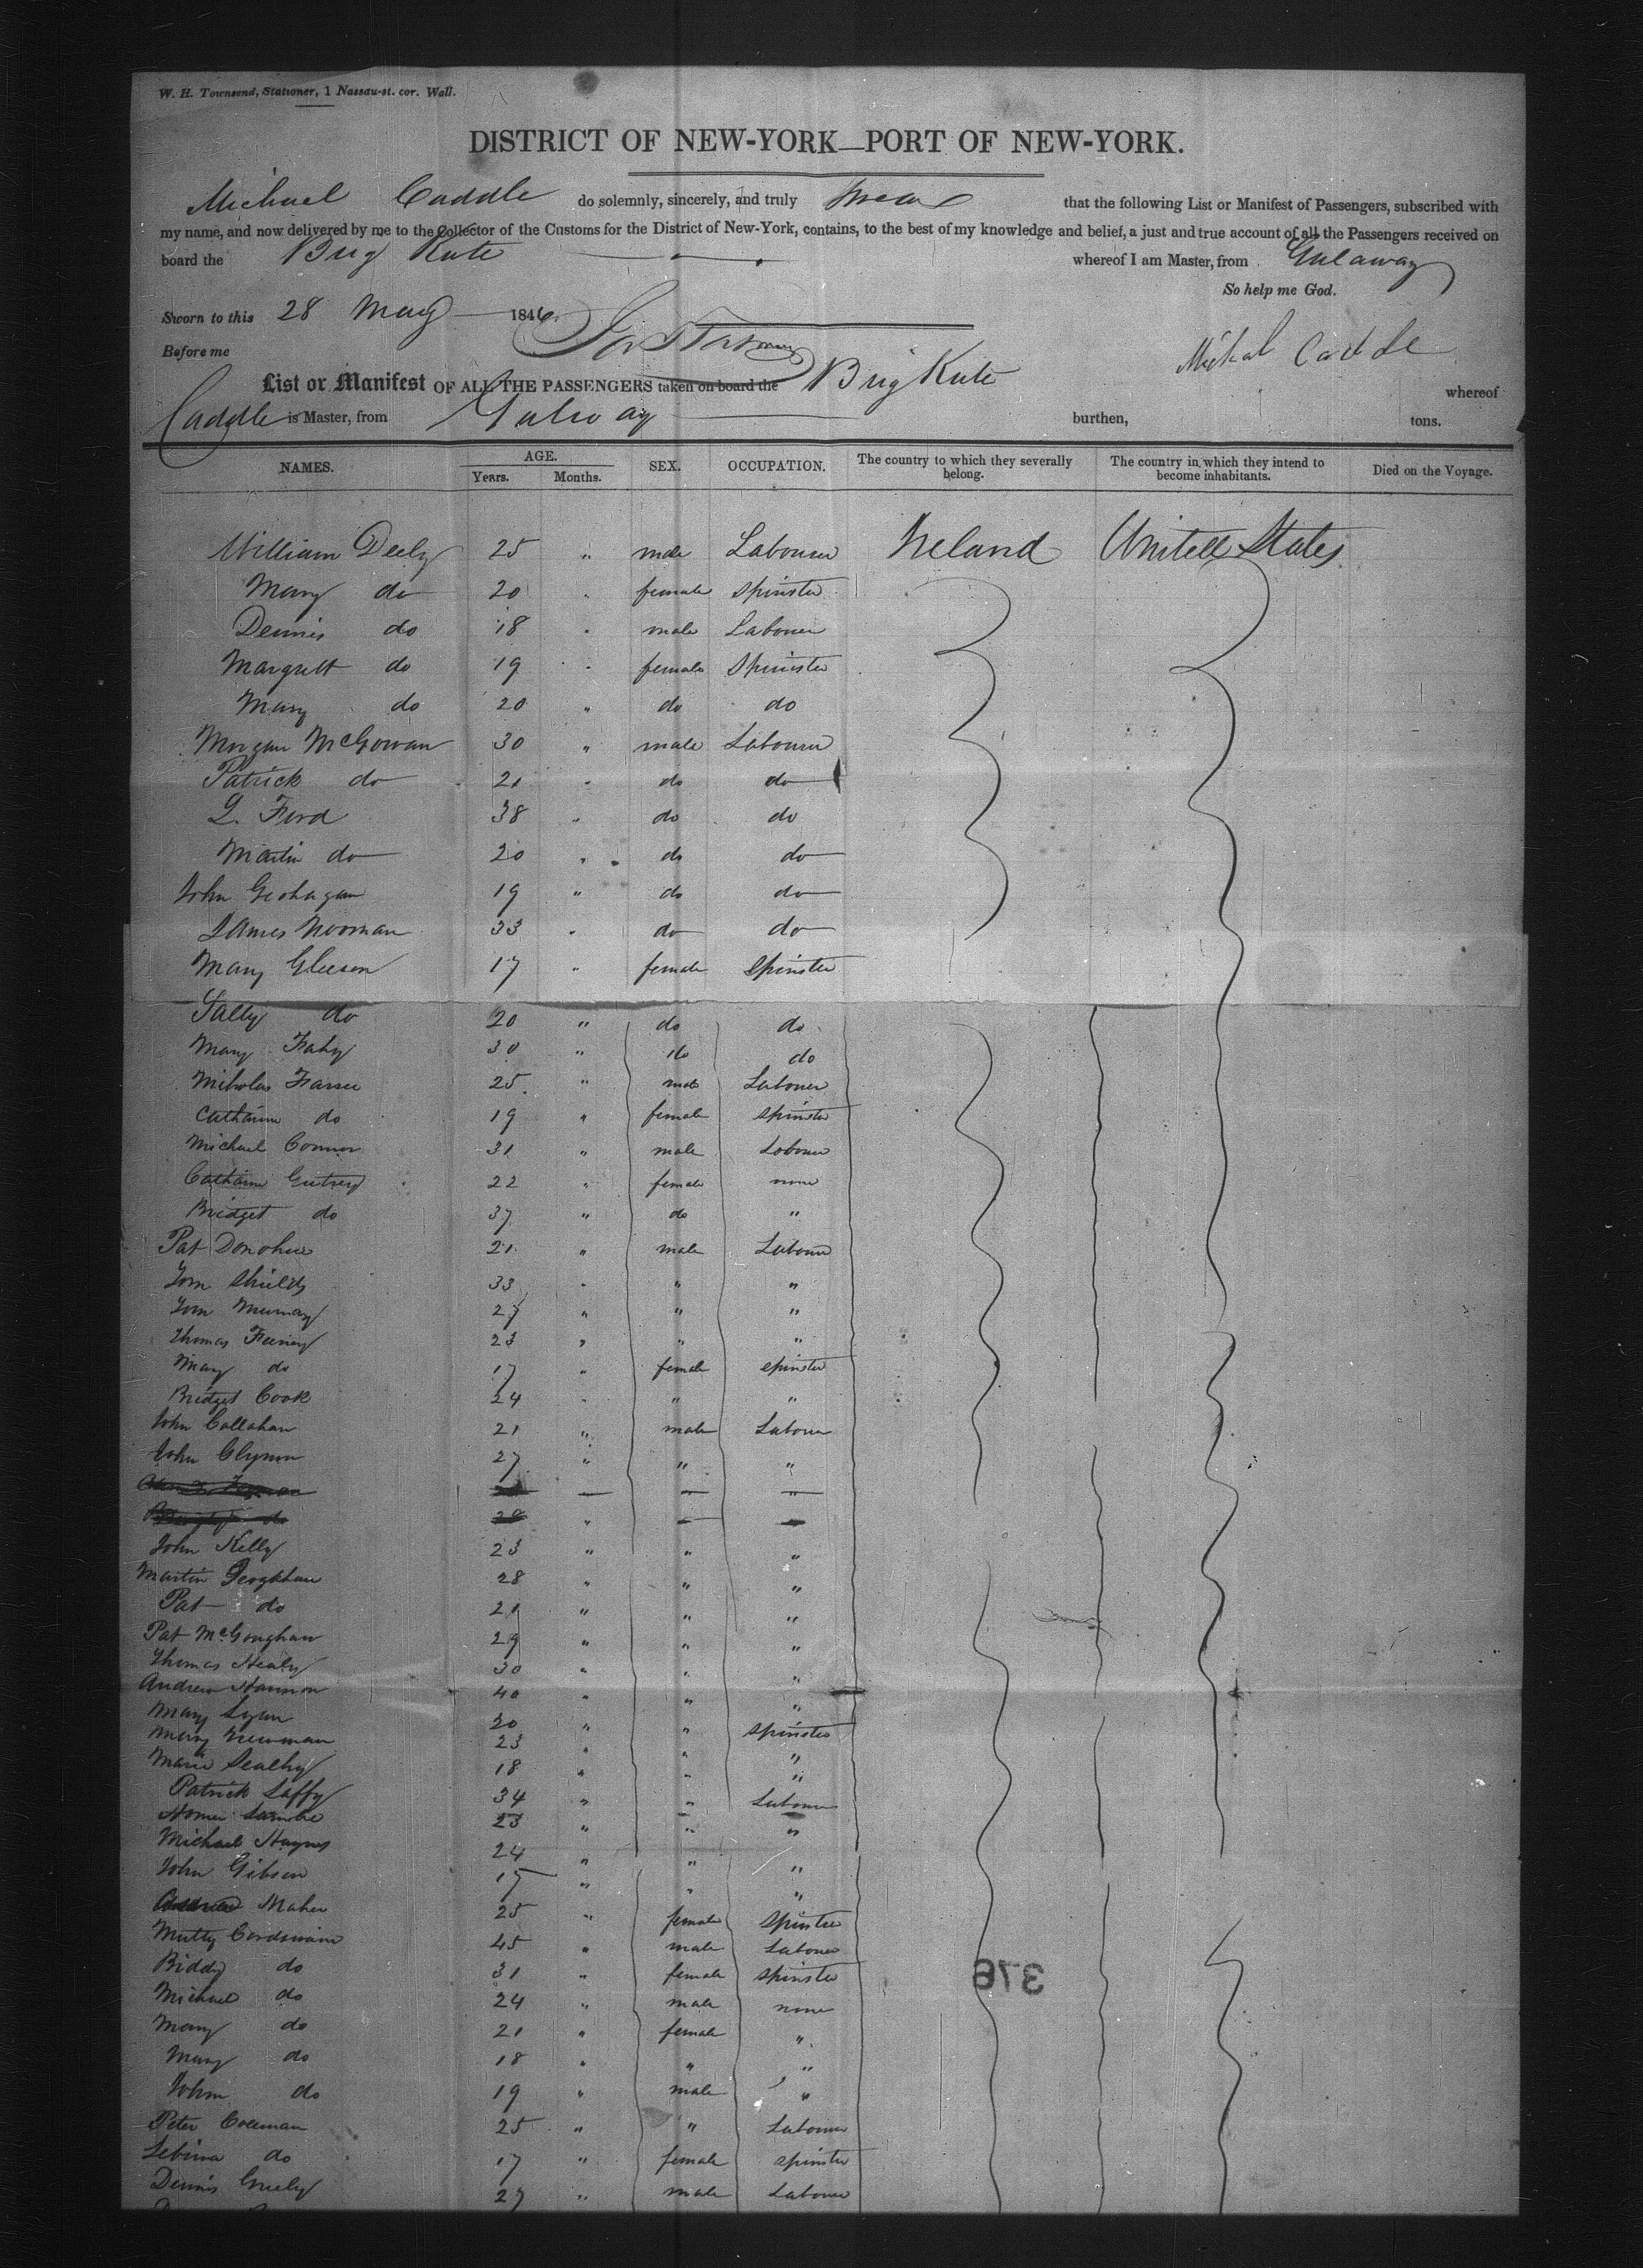 W. H. Townsend, Stationer, 1 Nassau-st. cor. Wall.
DISTRICT OF NEW-YORK—PORT OF NEW-YORK.
Michael Caddle do solemnly, sincerely, and truly swear that the following List or Manifest of Passengers, subscribed with
my name, and now delivered by me to the Collector of the Customs for the District of New-York, contains, to the best of my knowledge and belief, a just and true account of all the Passengers received on
board the Brig Kate whereof I am Master, from Galaway
So help me God.
Sworn to this 28 May 1846
Before me Michal Caddle
List or Manifest OF ALL THE PASSENGERS taken on board the Brig Kate whereof
Caddle is Master, from Galway burthen, tons.
NAMES. AGE. SEX. OCCUPATION. The country to which they severally belong. The country in which they intend to become inhabitants. Died on the Voyage.
Years. Months.
William Deely 25 " male Labourer Ireland United States
Mary do 20 " female spinster
Dennis do 18 " male Labourer
Margrett do 19 " female Spinster
Mary do 20 " do do
Morgan McGowan 30 " male Labourer
Patrick do 21 " do do
Ford 38 " do do
Martin do 20 " do do
John Geohagan 19 " do do
James Noonan 33 " do do
Mary Gleeson 17 " female spinster
Sally do 20 " do do
Mary Fahy 30 " do do
Nicholas 25 " male Labourer
Catharine do 19 " female spinster
Michael Connor 31 " male Labourer
Catharine 22 " female none
Bridget do 37 " do "
Pat Donohue 21 " male Labourer
Tom Shields 33 " " "
Tom Murray 27 " " "
Thomas Feeney 23 " " "
Mary do 17 " female spinster
Bridget Cook 24 " " "
John Callahan 21 " male Labourer
John Glynn 27 " " "
John Kelly 23 " " "
Martin 28 " " "
Pat do 21 " " "
Pat McGoughan 29 " " "
Thomas Healy 30 " " "
Andrew Hannon 40 " " "
Mary Lynn 20 " " spinster
Mary Newman 23 " " "
Maria 18 " " "
Patrick Laffy 34 " " Labourer
23 " " "
Michael Haynes 24 " " "
John Gibson 17 " " "
Maher 25 " female spinster
Mutty Cordwaine 45 " male Labourer
Biddy do 31 " female spinster
Michael do 24 " male none
Mary do 21 " female "
Mary do 18 " " "
John do 19 " male "
Peter Coleman 25 " " Labourer
do 17 " female spinster
Dennis 27 " male Labourer
376